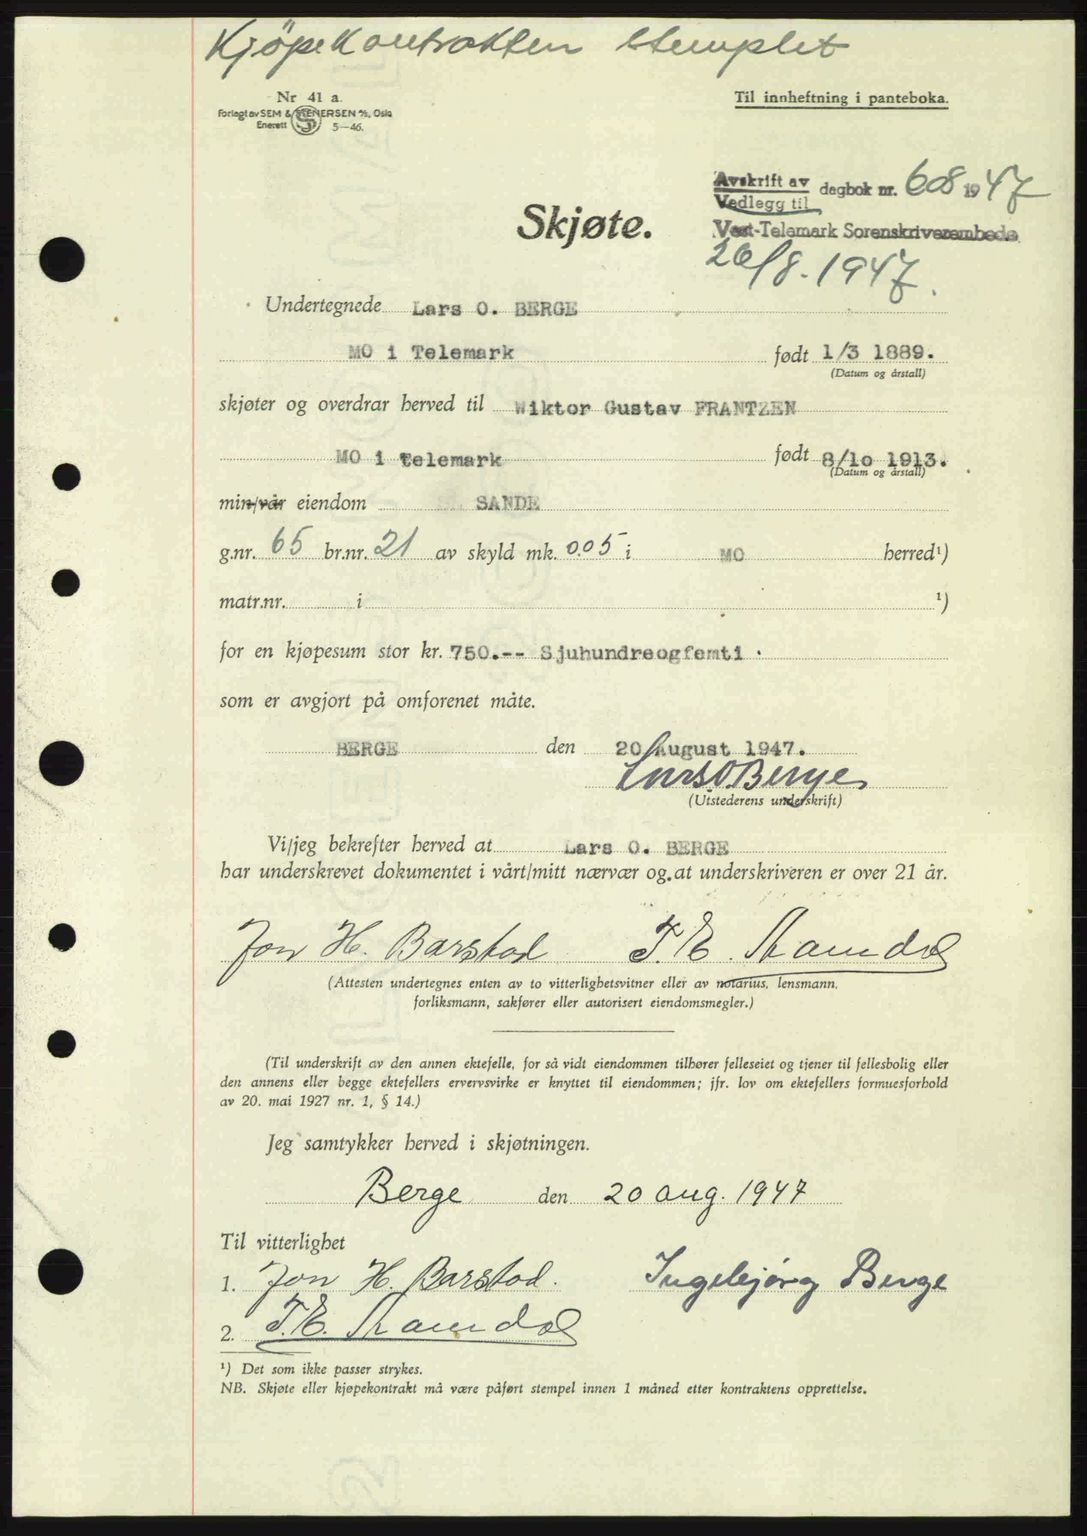 Kjöpekontrakten stemplet
Nr 41 a.
Forlagt av SEM & STENERSEN A/S, Oslo
Enerett S 5—46.
Til innheftning i panteboka.
Avskrift av
Vedlegg til dagbok nr. 608 1947
Vest-Telemark Sorenskriverembede
26/8. 1947.
Skjøte.
Undertegnede Lars O. BERGE
MO i Telemark født 1/3 1889.
(Datum og årstall)
skjøter og overdrar herved til Wiktor Gustav FRANTZEN
MO i Telemark født 8/10 1913.
(Datum og årstall)
min/vår eiendom SANDE
g.nr. 65 br.nr. 21 av skyld mk. 0.05 i MO herred¹)
matr.nr. i ¹)
for en kjøpesum stor kr. 750.-- Sjuhundreogfemti
som er avgjort på omforenet måte.
BERGE den 20 August 1947.
Lars O Berge
(Utstederens underskrift)
Vi/jeg bekrefter herved at Lars O. BERGE
har underskrevet dokumentet i vårt/mitt nærvær og at underskriveren er over 21 år.
Jon H. Barstad T. E.
(Attesten undertegnes enten av to vitterlighetsvitner eller av notarius, lensmann,
forliksmann, sakfører eller autorisert eiendomsmegler.)
(Til underskrift av den annen ektefelle, for så vidt eiendommen tilhører felleseiet og tjener til fellesbolig eller
den annens eller begge ektefellers ervervsvirke er knyttet til eiendommen; jfr. lov om ektefellers formuesforhold
av 20. mai 1927 nr. 1, § 14.)
Jeg samtykker herved i skjøtningen.
Berge den 20 aug. 1947
Til vitterlighet
1. Jon H. Barstad. Ingebjørg Berge
2. T. E.
¹) Det som ikke passer strykes.
NB. Skjøte eller kjøpekontrakt må være påført stempel innen 1 måned etter kontraktens opprettelse.